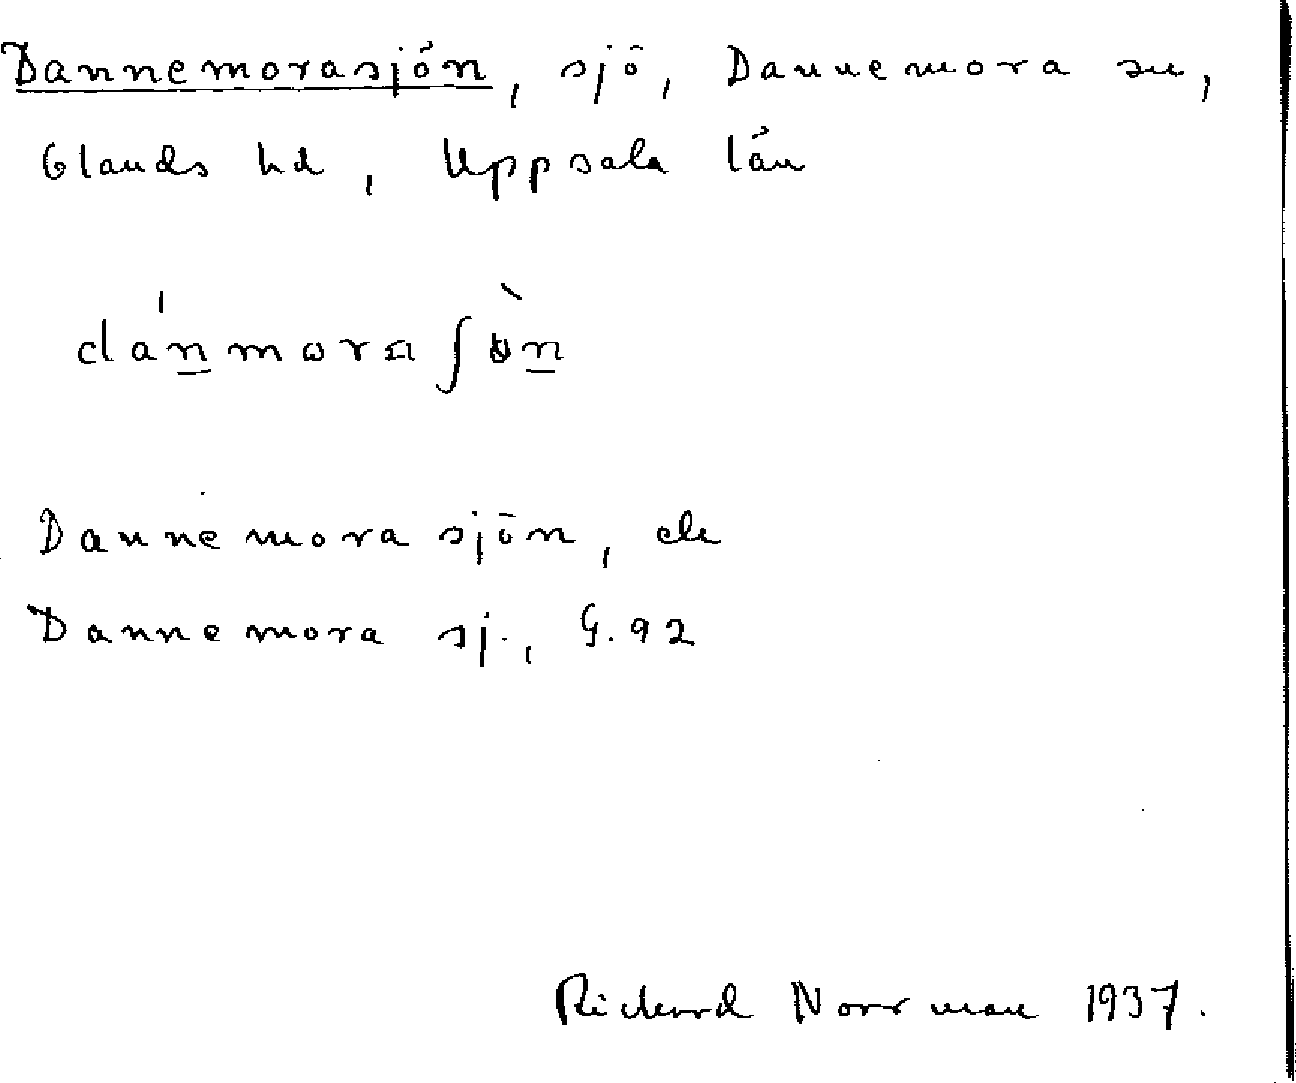 Dannemorasjön, sjö, Dannemora sn,
Olands hd, Uppsala län
Dannemora sjön, ek
Dannemora sj., G.92
Rickard Norrman 1937.